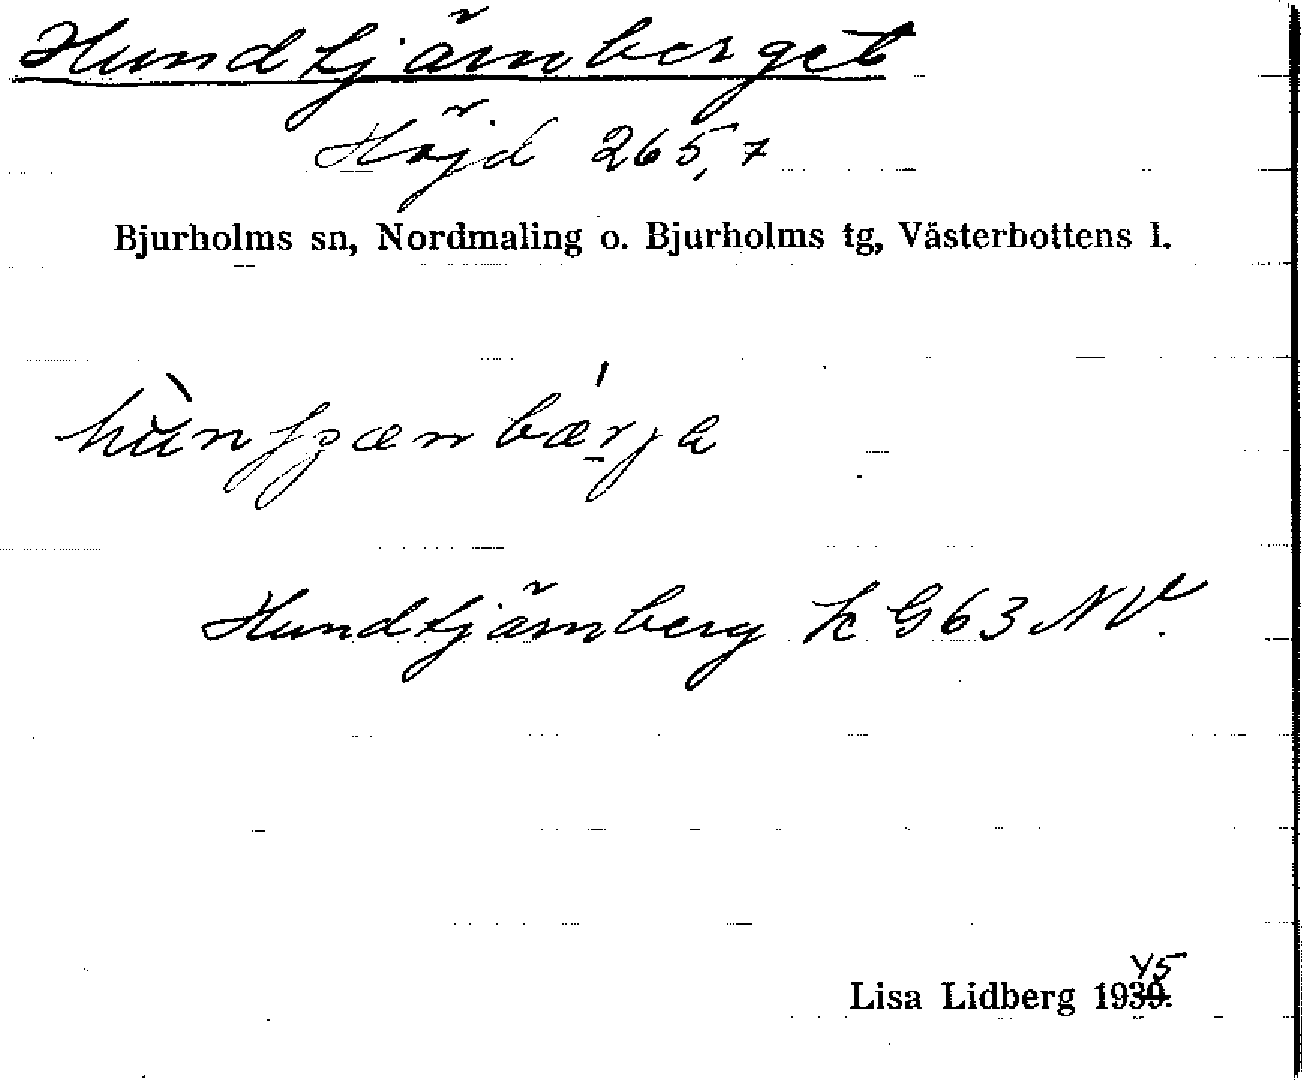 Hundtjärnberget
Höjd 265,7
Bjurholms sn, Nordmaling o. Bjurholms tg, Västerbottens l.
Hundtjärnberg k G63 NV.
45
Lisa Lidberg 1939.